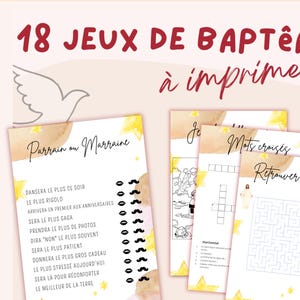 18 JEUX DE BAPTÊ
à imprime
Parrain ou Marraine
DANSERA LE PLUS CE SOIR
LE PLUS RIGOLO
ARRIVERA EN PREMIER AUX ANNIVERSAIRES
SERA LE PLUS GAGA
PRENDRA LE PLUS DE PHOTOS
DIRA "NON" LE PLUS SOUVENT
SERA LE PLUS PATIENT
DONNERA LE PLUS GROS CADEAU
LE PLUS STRESSÉ AUJOURD'HUI
SERA LÀ POUR RÉCONFORTER
LE MEILLEUR DE LA TERRE
Mots croisés
Retrouver